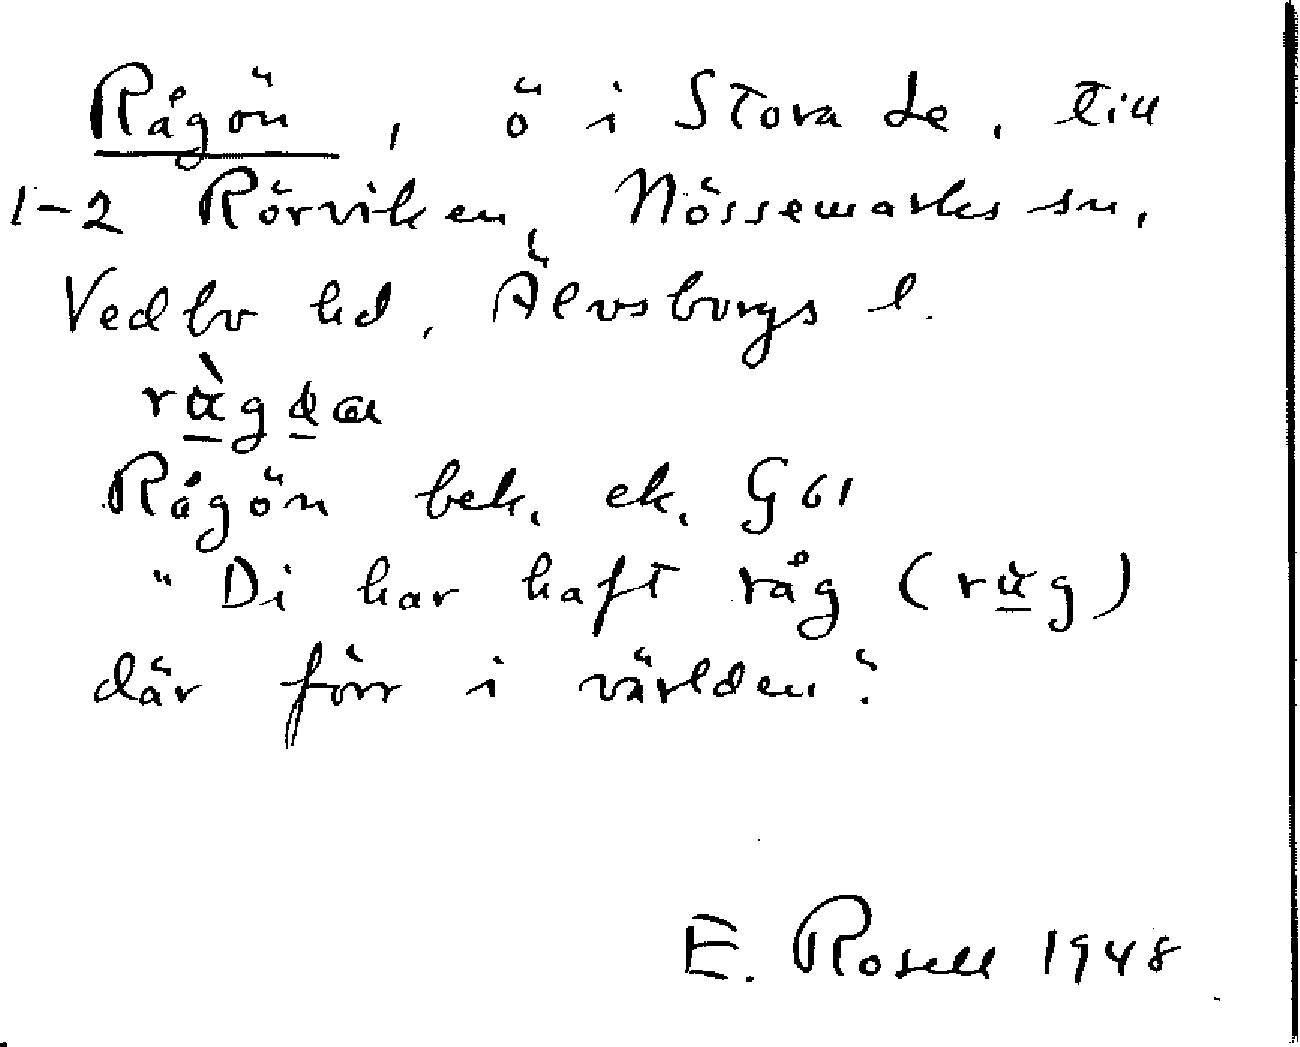 Rågön, ö i Stora Le, till
1-2 Rörviken, Nössemarks sn,
Vedbo hd, Älvsborgs l.
Rågön bek. ek. G 61
"Di har haft råg
där förr i världen".
E. Rosell 1948